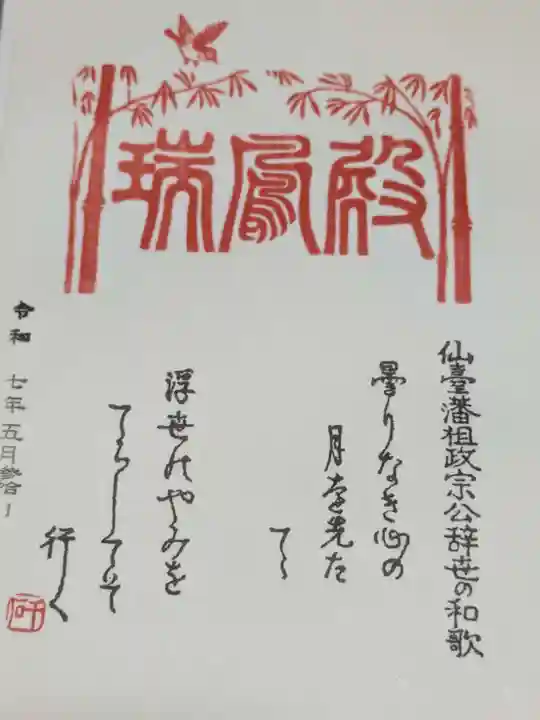 瑞鳳殿
仙臺藩祖政宗公辞世の和歌
曇りなき心の
月を先た
てゝ
浮世のやみを
てらしてそ
行く
令和 七年五月参拾